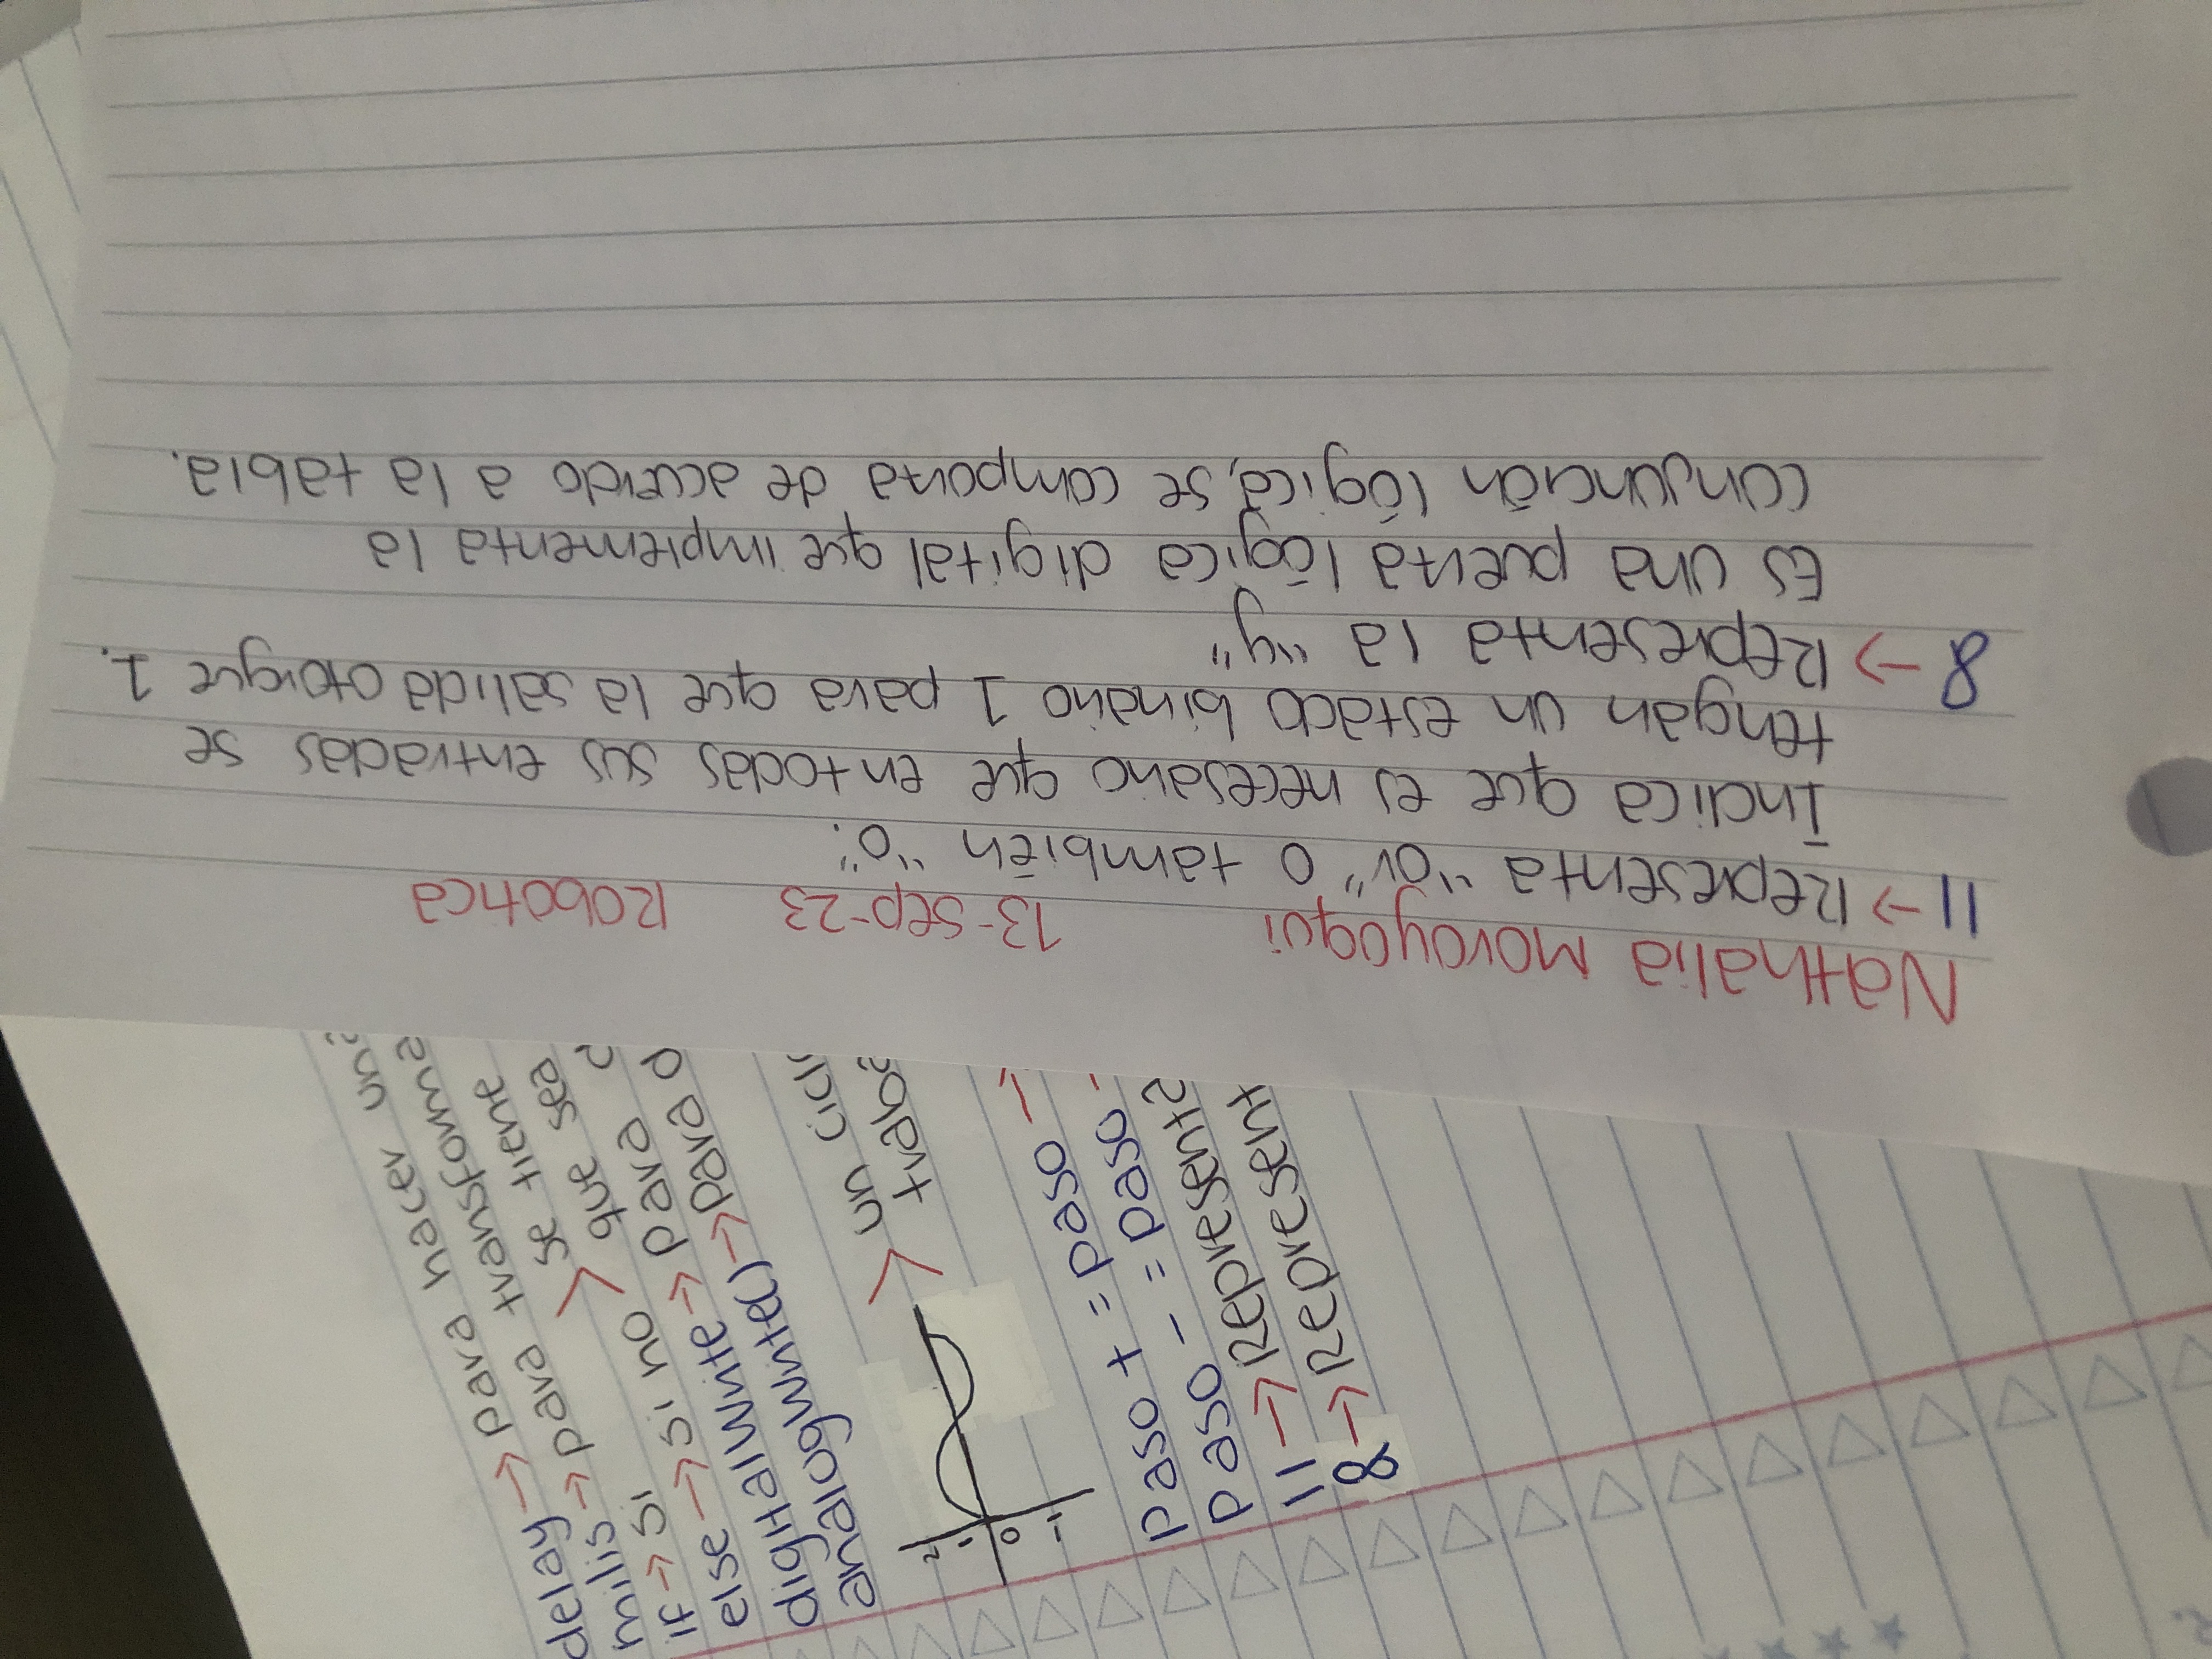 Nathalia Moroyoqui 13-sep-23 Robotica
11 → Representa "or" O también "o".
Indica que es necesario que entodas sus entradas se
tengan un estado binario 1 para que la salida otorgue 1.
8 → Representa la "y"
Es una puerta lógica digital que implementa la
conjunción lógica, se comporta de acuerdo a la tabla.
delay → para hacer una
milis → para transforma
if → si > se tiene que sea
else → si no
digitalWrite → para
analogWrite() → para d
2
1
0
-1
> un cicl
trabo
paso + = paso -
paso - = paso -
11 → Representa
8 → Represent